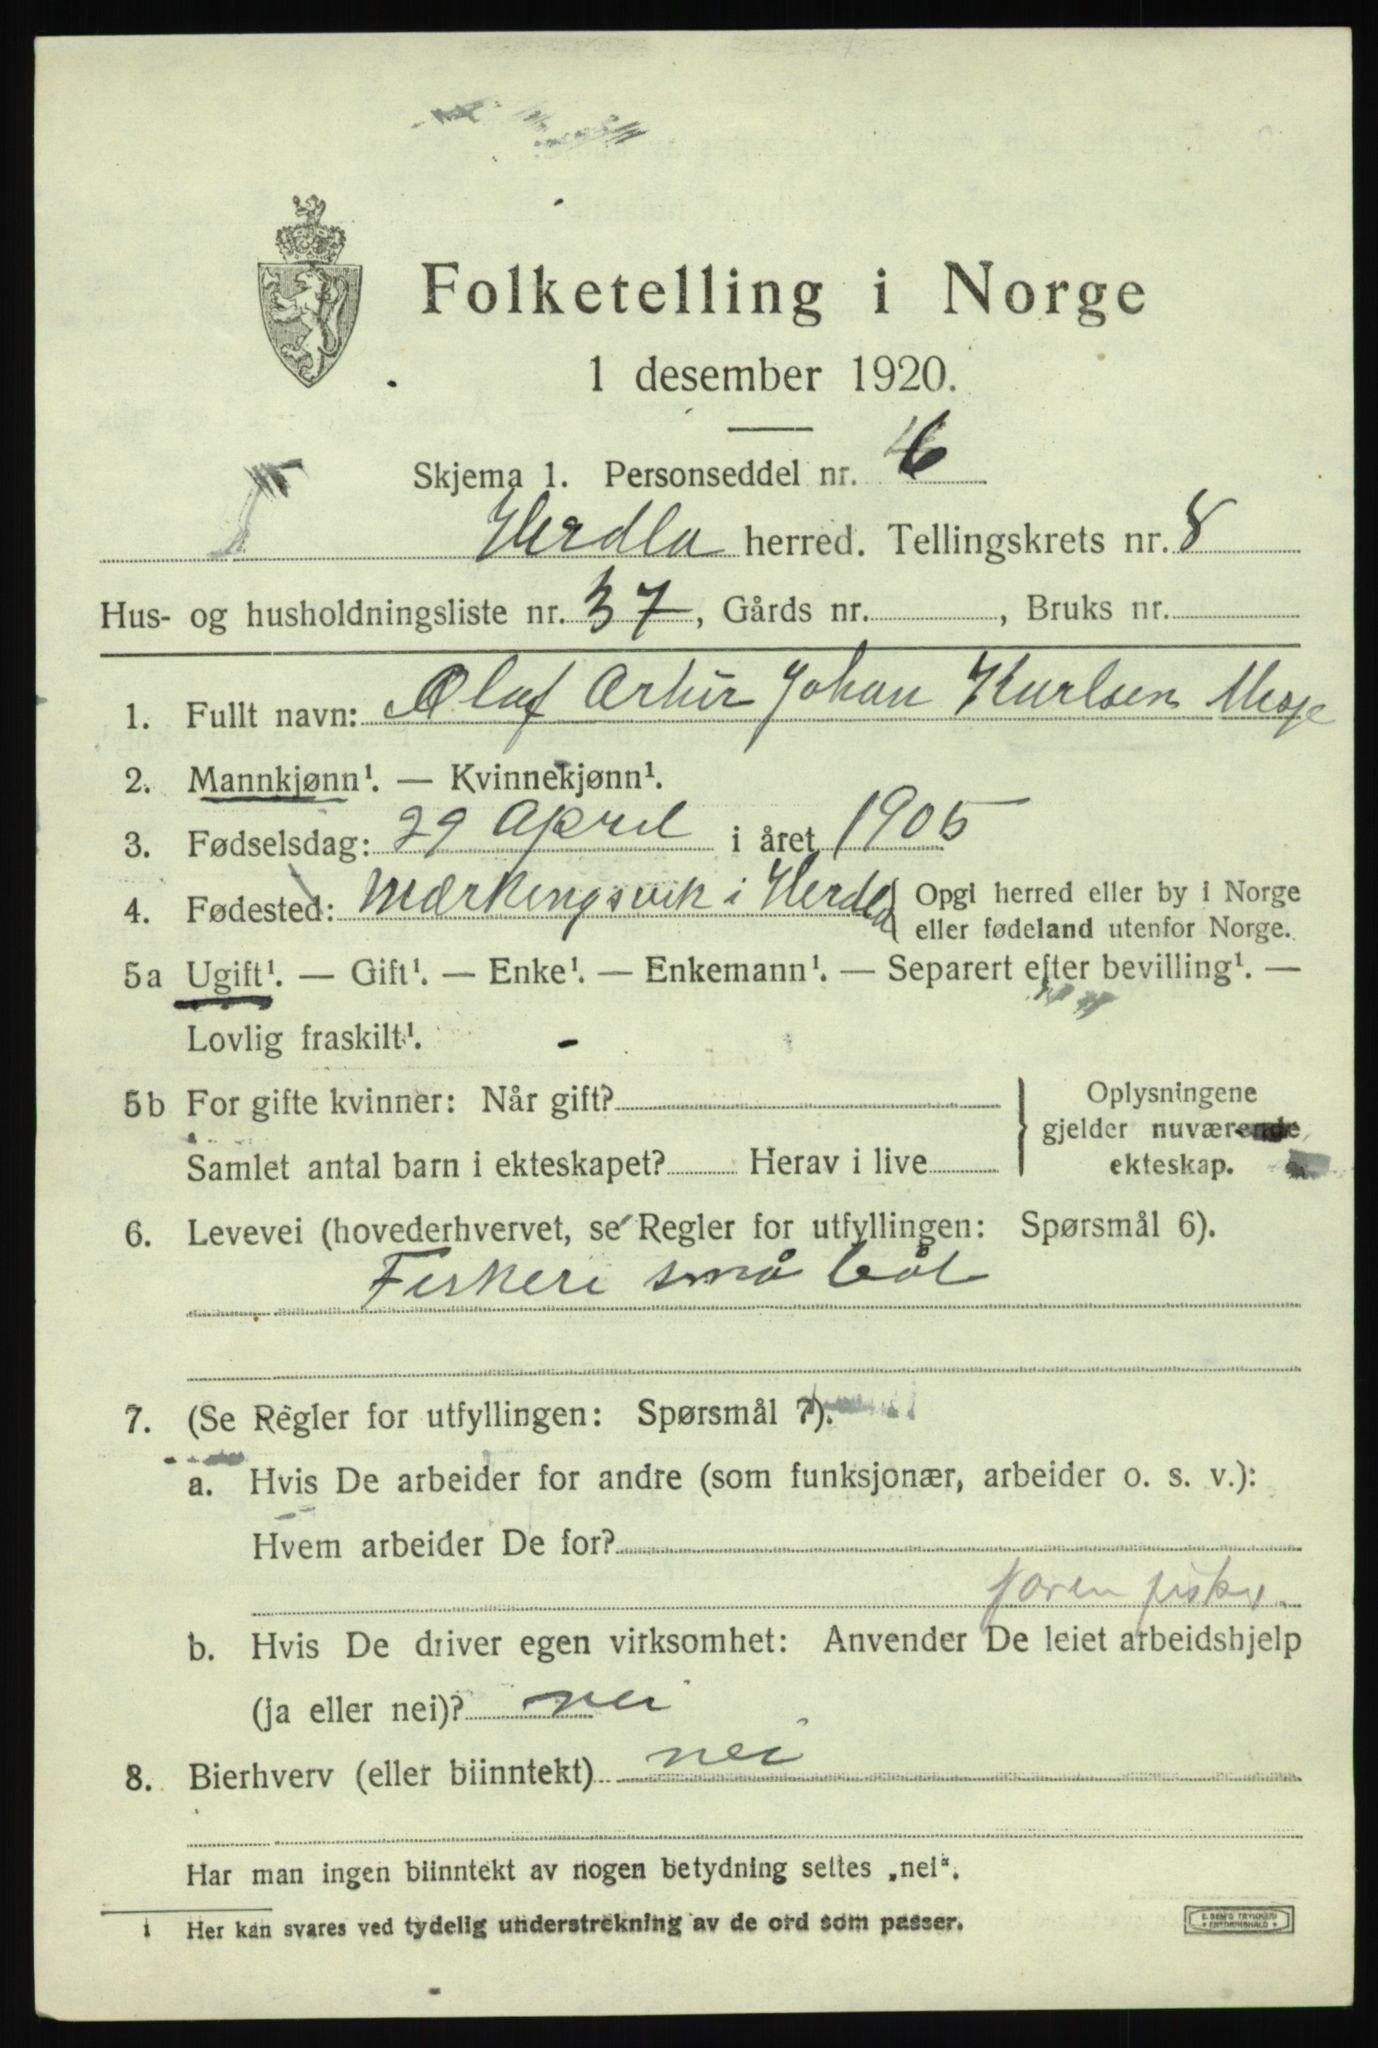 Folketelling i Norge
1 desember 1920.
Skjema 1. Personseddel nr. 6
Herdla herred. Tellingskrets nr. 8
Hus- og husholdningsliste nr. 37, Gårds nr. , Bruks nr.
1. Fullt navn: Olaf Artur Johan Karlsen
2. Mannkjønn¹. — Kvinnekjønn¹.
3. Fødselsdag: 29 April i året 1905
4. Fødested: Mærkingsvik i Herdla Opgi herred eller by i Norge
eller fødeland utenfor Norge.
5a Ugift¹. — Gift¹. — Enke¹. — Enkemann¹. — Separert efter bevilling¹. —
Lovlig fraskilt¹.
5b For gifte kvinner: Når gift? Oplysningene
gjelder nuværende
Samlet antal barn i ekteskapet? Herav i live ekteskap.
6. Levevei (hovederhvervet, se Regler for utfyllingen: Spørsmål 6).
Fiskeri små båt
7. (Se Regler for utfyllingen: Spørsmål 7).
a. Hvis De arbeider for andre (som funksjonær, arbeider o. s. v.):
Hvem arbeider De for?
b. Hvis De driver egen virksomhet: Anvender De leiet arbeidshjelp
(ja eller nei)? nei
8. Bierhverv (eller biinntekt) nei
Har man ingen biinntekt av nogen betydning settes „nei".
1 Her kan svares ved tydelig understrekning av de ord som passer.